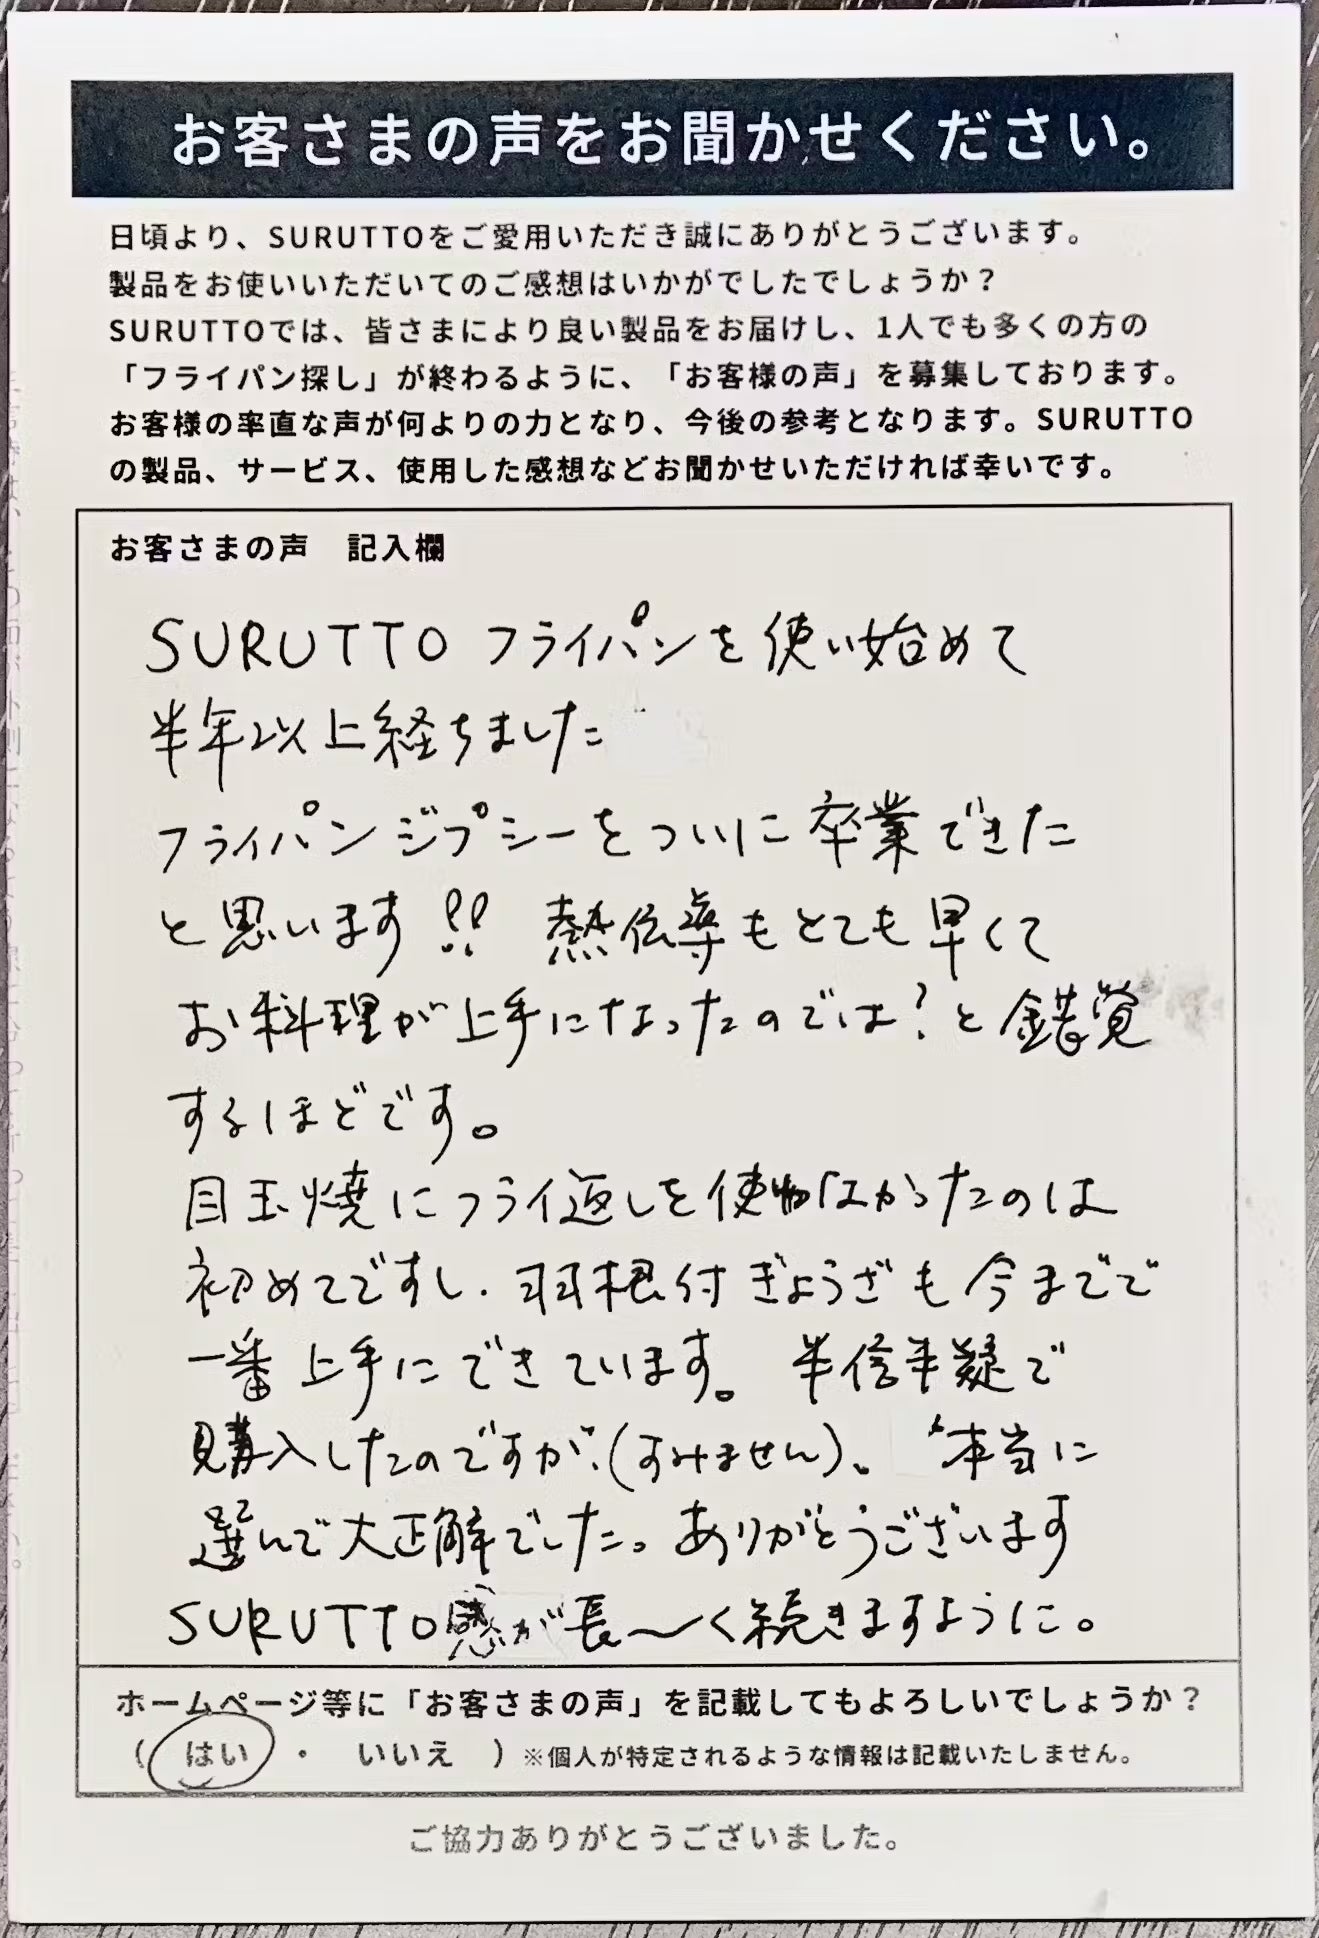 お客さまの声をお聞かせください。
日頃より、SURUTTOをご愛用いただき誠にありがとうございます。
製品をお使いいただいてのご感想はいかがでしたでしょうか？
SURUTTOでは、皆さまにより良い製品をお届けし、1人でも多くの方の
「フライパン探し」が終わるように、「お客様の声」を募集しております。
お客様の率直な声が何よりの力となり、今後の参考となります。SURUTTO
の製品、サービス、使用した感想などお聞かせいただければ幸いです。
お客さまの声　記入欄
SURUTTO フライパンを使い始めて
半年以上経ちました
フライパンジプシーをついに卒業できた
と思います!! 熱伝導もとても早くて
お料理が上手になったのでは?と錯覚
するほどです。
目玉焼にフライ返しを使わなかったのは
初めてですし、羽根付ぎょうざも今までで
一番上手にできています。半信半疑で
購入したのですが、(すみません)、本当に
選んで大正解でした。ありがとうございます
SURUTTO感が長〜く続きますように。
ホームページ等に「お客さまの声」を記載してもよろしいでしょうか？
（ はい ・ いいえ ）※個人が特定されるような情報は記載いたしません。
ご協力ありがとうございました。